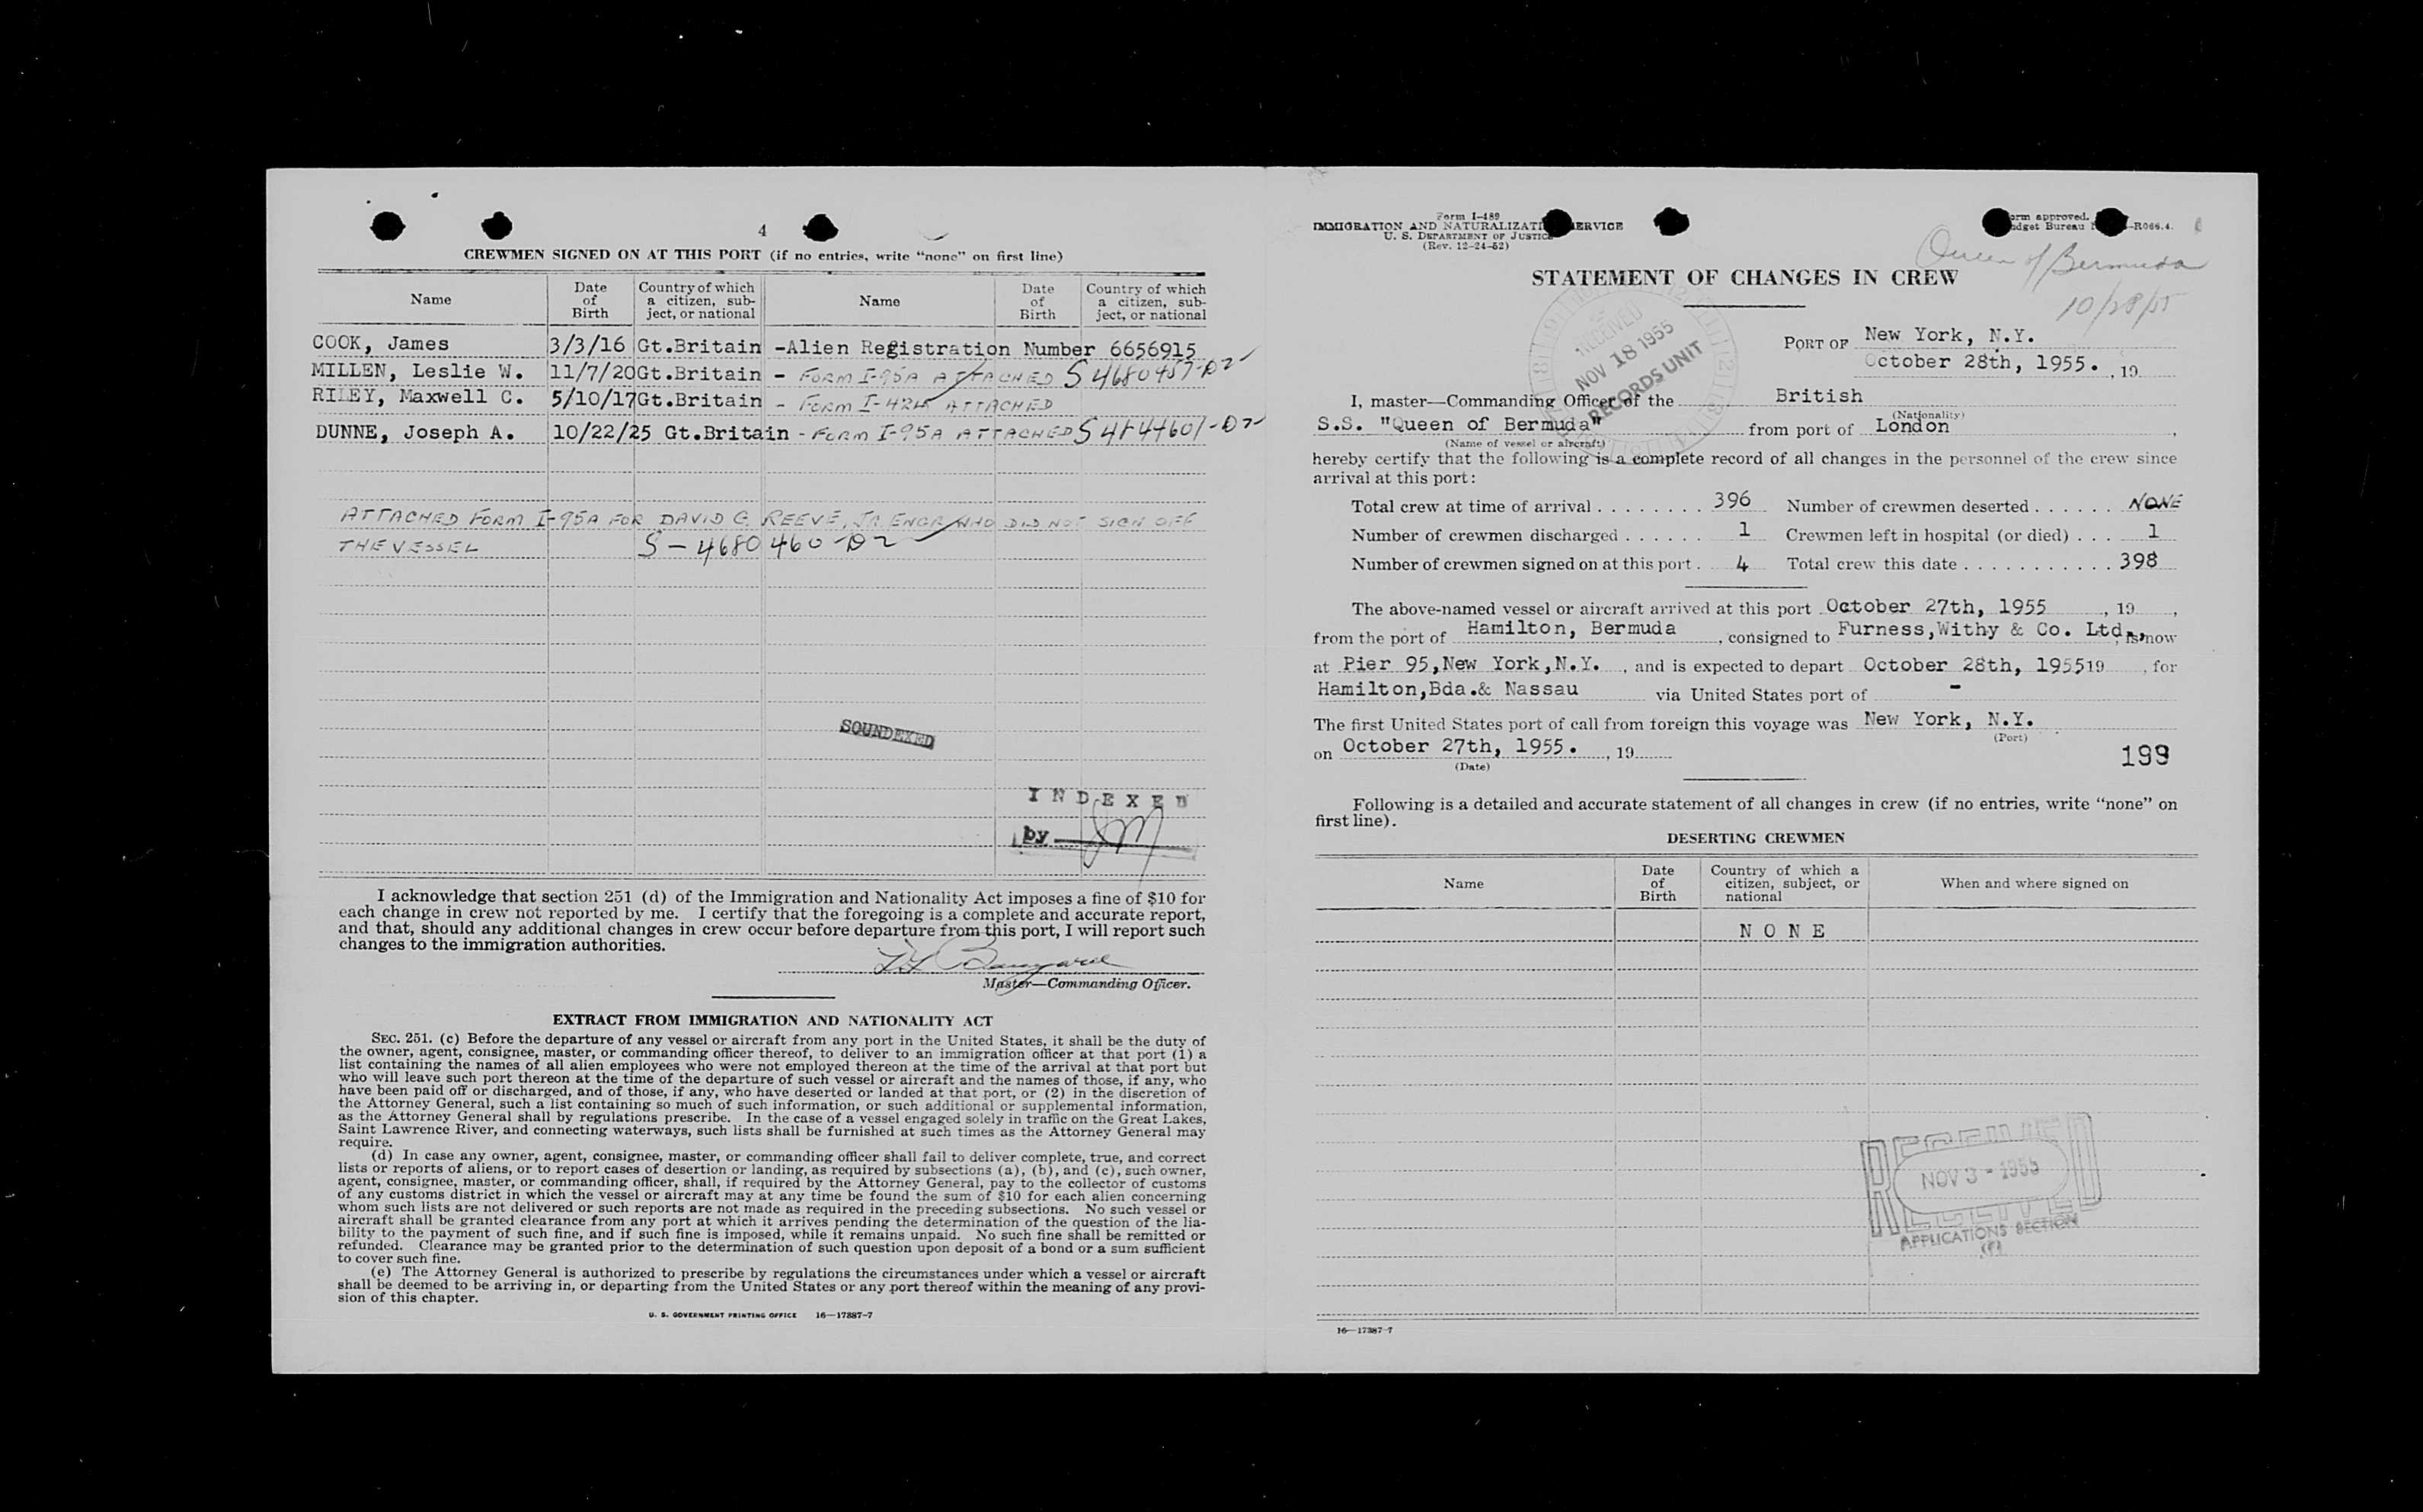 4
CREWMEN SIGNED ON AT THIS PORT (if no entries, write “none” on first line)
Name
Date of Birth
Country of which a citizen, sub-ject, or national
Name
Date of Birth
Country of which a citizen, sub-ject, or national
COOK, James 3/3/16 Gt.Britain -Alien Registration Number 6656915
MILLEN, Leslie W. 11/7/20 Gt.Britain - FORM I-95A ATTACHED
RILEY, Maxwell C. 5/10/17 Gt.Britain - FORM ATTACHED
DUNNE, Joseph A. 10/22/25 Gt.Britain - FORM I-95A ATTACHED
ATTACHED FORM I-95A FOR DAVID G. REEVE, JR. ENGR WHO DID NOT SIGN OFF
THE VESSEL S-4680460-D2
SOUNDEXED
INDEXED
by
I acknowledge that section 251 (d) of the Immigration and Nationality Act imposes a fine of $10 for
each change in crew not reported by me. I certify that the foregoing is a complete and accurate report,
and that, should any additional changes in crew occur before departure from this port, I will report such
changes to the immigration authorities.
Master—Commanding Officer.
EXTRACT FROM IMMIGRATION AND NATIONALITY ACT
SEC. 251. (c) Before the departure of any vessel or aircraft from any port in the United States, it shall be the duty of
the owner, agent, consignee, master, or commanding officer thereof, to deliver to an immigration officer at that port (1) a
list containing the names of all alien employees who were not employed thereon at the time of the arrival at that port but
who will leave such port thereon at the time of the departure of such vessel or aircraft and the names of those, if any, who
have been paid off or discharged, and of those, if any, who have deserted or landed at that port, or (2) in the discretion of
the Attorney General, such a list containing so much of such information, or such additional or supplemental information,
as the Attorney General shall by regulations prescribe. In the case of a vessel engaged solely in traffic on the Great Lakes,
Saint Lawrence River, and connecting waterways, such lists shall be furnished at such times as the Attorney General may
require.
(d) In case any owner, agent, consignee, master, or commanding officer shall fail to deliver complete, true, and correct
lists or reports of aliens, or to report cases of desertion or landing, as required by subsections (a), (b), and (c), such owner,
agent, consignee, master, or commanding officer, shall, if required by the Attorney General, pay to the collector of customs
of any customs district in which the vessel or aircraft may at any time be found the sum of $10 for each alien concerning
whom such lists are not delivered or such reports are not made as required in the preceding subsections. No such vessel or
aircraft shall be granted clearance from any port at which it arrives pending the determination of the question of the lia-
bility to the payment of such fine, and if such fine is imposed, while it remains unpaid. No such fine shall be remitted or
refunded. Clearance may be granted prior to the determination of such question upon deposit of a bond or a sum sufficient
to cover such fine.
(e) The Attorney General is authorized to prescribe by regulations the circumstances under which a vessel or aircraft
shall be deemed to be arriving in, or departing from the United States or any port thereof within the meaning of any provi-
sion of this chapter.
U. S. GOVERNMENT PRINTING OFFICE 16—17887-7
Form I-489
IMMIGRATION AND NATURALIZATI ERVICE
U. S. DEPARTMENT OF JUSTICE
(Rev. 12-24-52)
orm approved.
dget Bureau -R066.4.
Queen of Bermuda
10/28/55
STATEMENT OF CHANGES IN CREW
RECEIVED
NOV 18 1955
RECORDS UNIT
PORT OF New York, N.Y.
October 28th, 1955. , 19
I, master—Commanding Officer of the British
(Nationality)
S.S. "Queen of Bermuda" from port of London ,
(Name of vessel or aircraft)
hereby certify that the following is a complete record of all changes in the personnel of the crew since
arrival at this port:
Total crew at time of arrival . . . . . . . . 396 Number of crewmen deserted . . . . . . NONE
Number of crewmen discharged . . . . . . 1 Crewmen left in hospital (or died) . . . 1
Number of crewmen signed on at this port . 4 Total crew this date . . . . . . . . . . . . 398
The above-named vessel or aircraft arrived at this port October 27th, 1955 , 19 ,
from the port of Hamilton, Bermuda , consigned to Furness,Withy & Co. Ltd., , is now
at Pier 95,New York,N.Y. , and is expected to depart October 28th, 1955 19 , for
Hamilton,Bda.& Nassau via United States port of -
The first United States port of call from foreign this voyage was New York, N.Y.
(Port)
on October 27th, 1955. , 19
(Date)
199
Following is a detailed and accurate statement of all changes in crew (if no entries, write “none” on
first line).
DESERTING CREWMEN
Name
Date of Birth
Country of which a citizen, subject, or national
When and where signed on
N O N E
RECEIVED
NOV 3 - 1955
RECEIVED
APPLICATIONS SECTION
16—17887-7